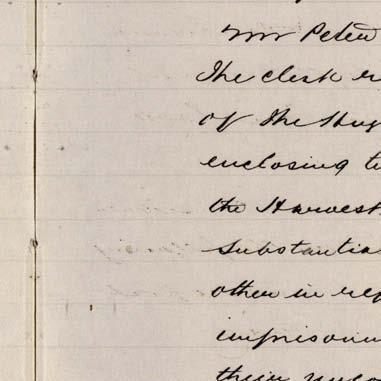 Mr Peter
The clerk r
of the Hug
enclosing t
the Harvest
substantia
other in rep
imprisonm
their